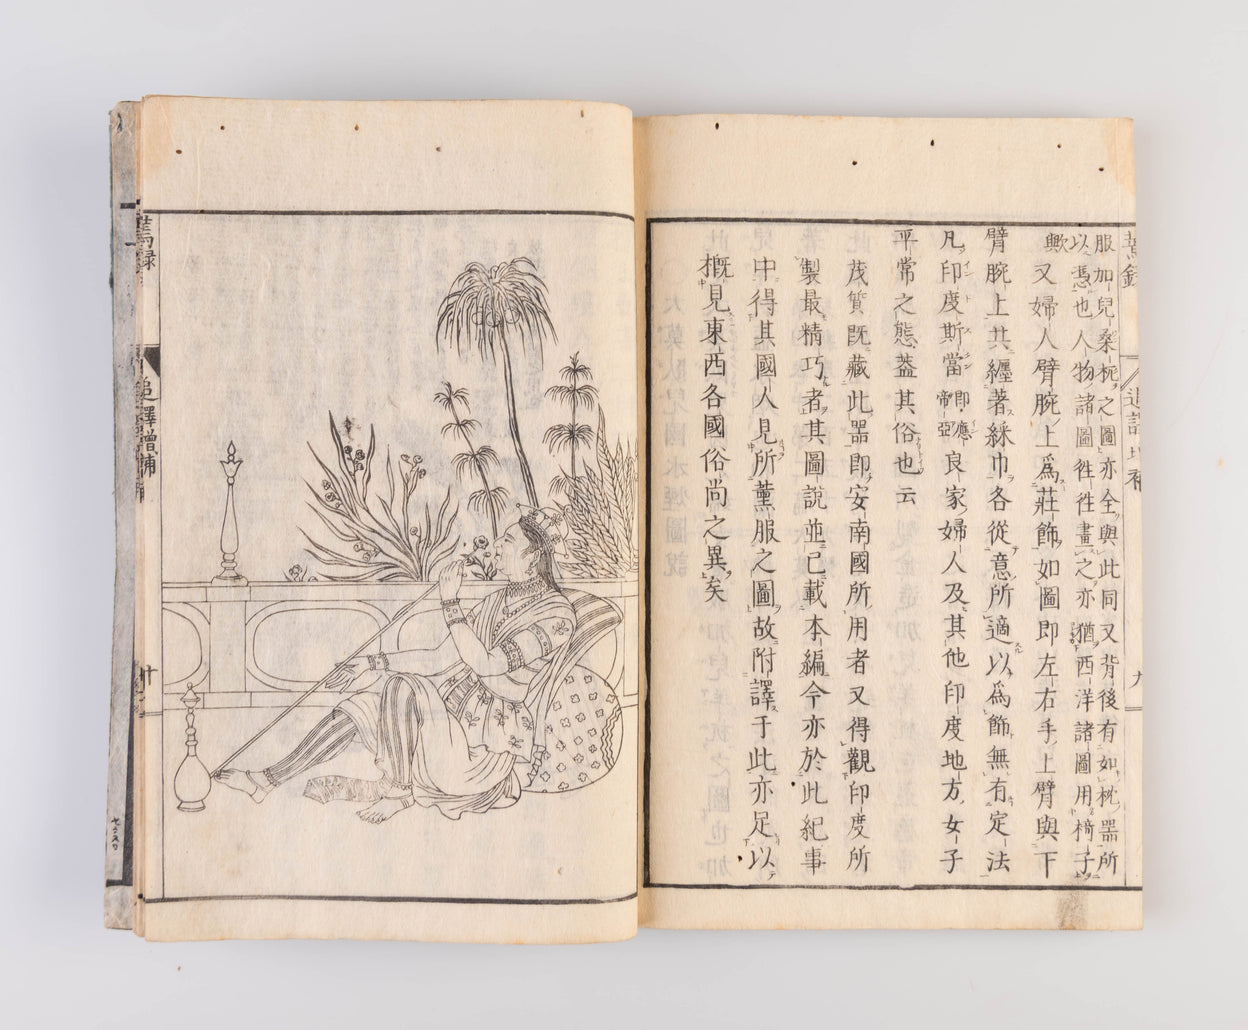 服加兒桑柅之圖亦全與此同又背後有如枕器所
以憑也人物諸圖徃徃畫之亦猶西洋諸圖用椅子
歟
又婦人臂腕上爲莊飾如圖即左右手上臂與下
臂腕上共纒著綵巾各從意所適以爲飾無有定法
凡印度斯當即應帝亞良家婦人及其他印度地方女子
平常之態蓋其俗也云
茂質既藏此器即安南國所用者又得觀印度所
製最精巧者其圖說並已載本編今亦於此紀事
中得其國人見所薰服之圖故附譯于此亦足以
概見東西各國俗尚之異矣
追譯增補
廿